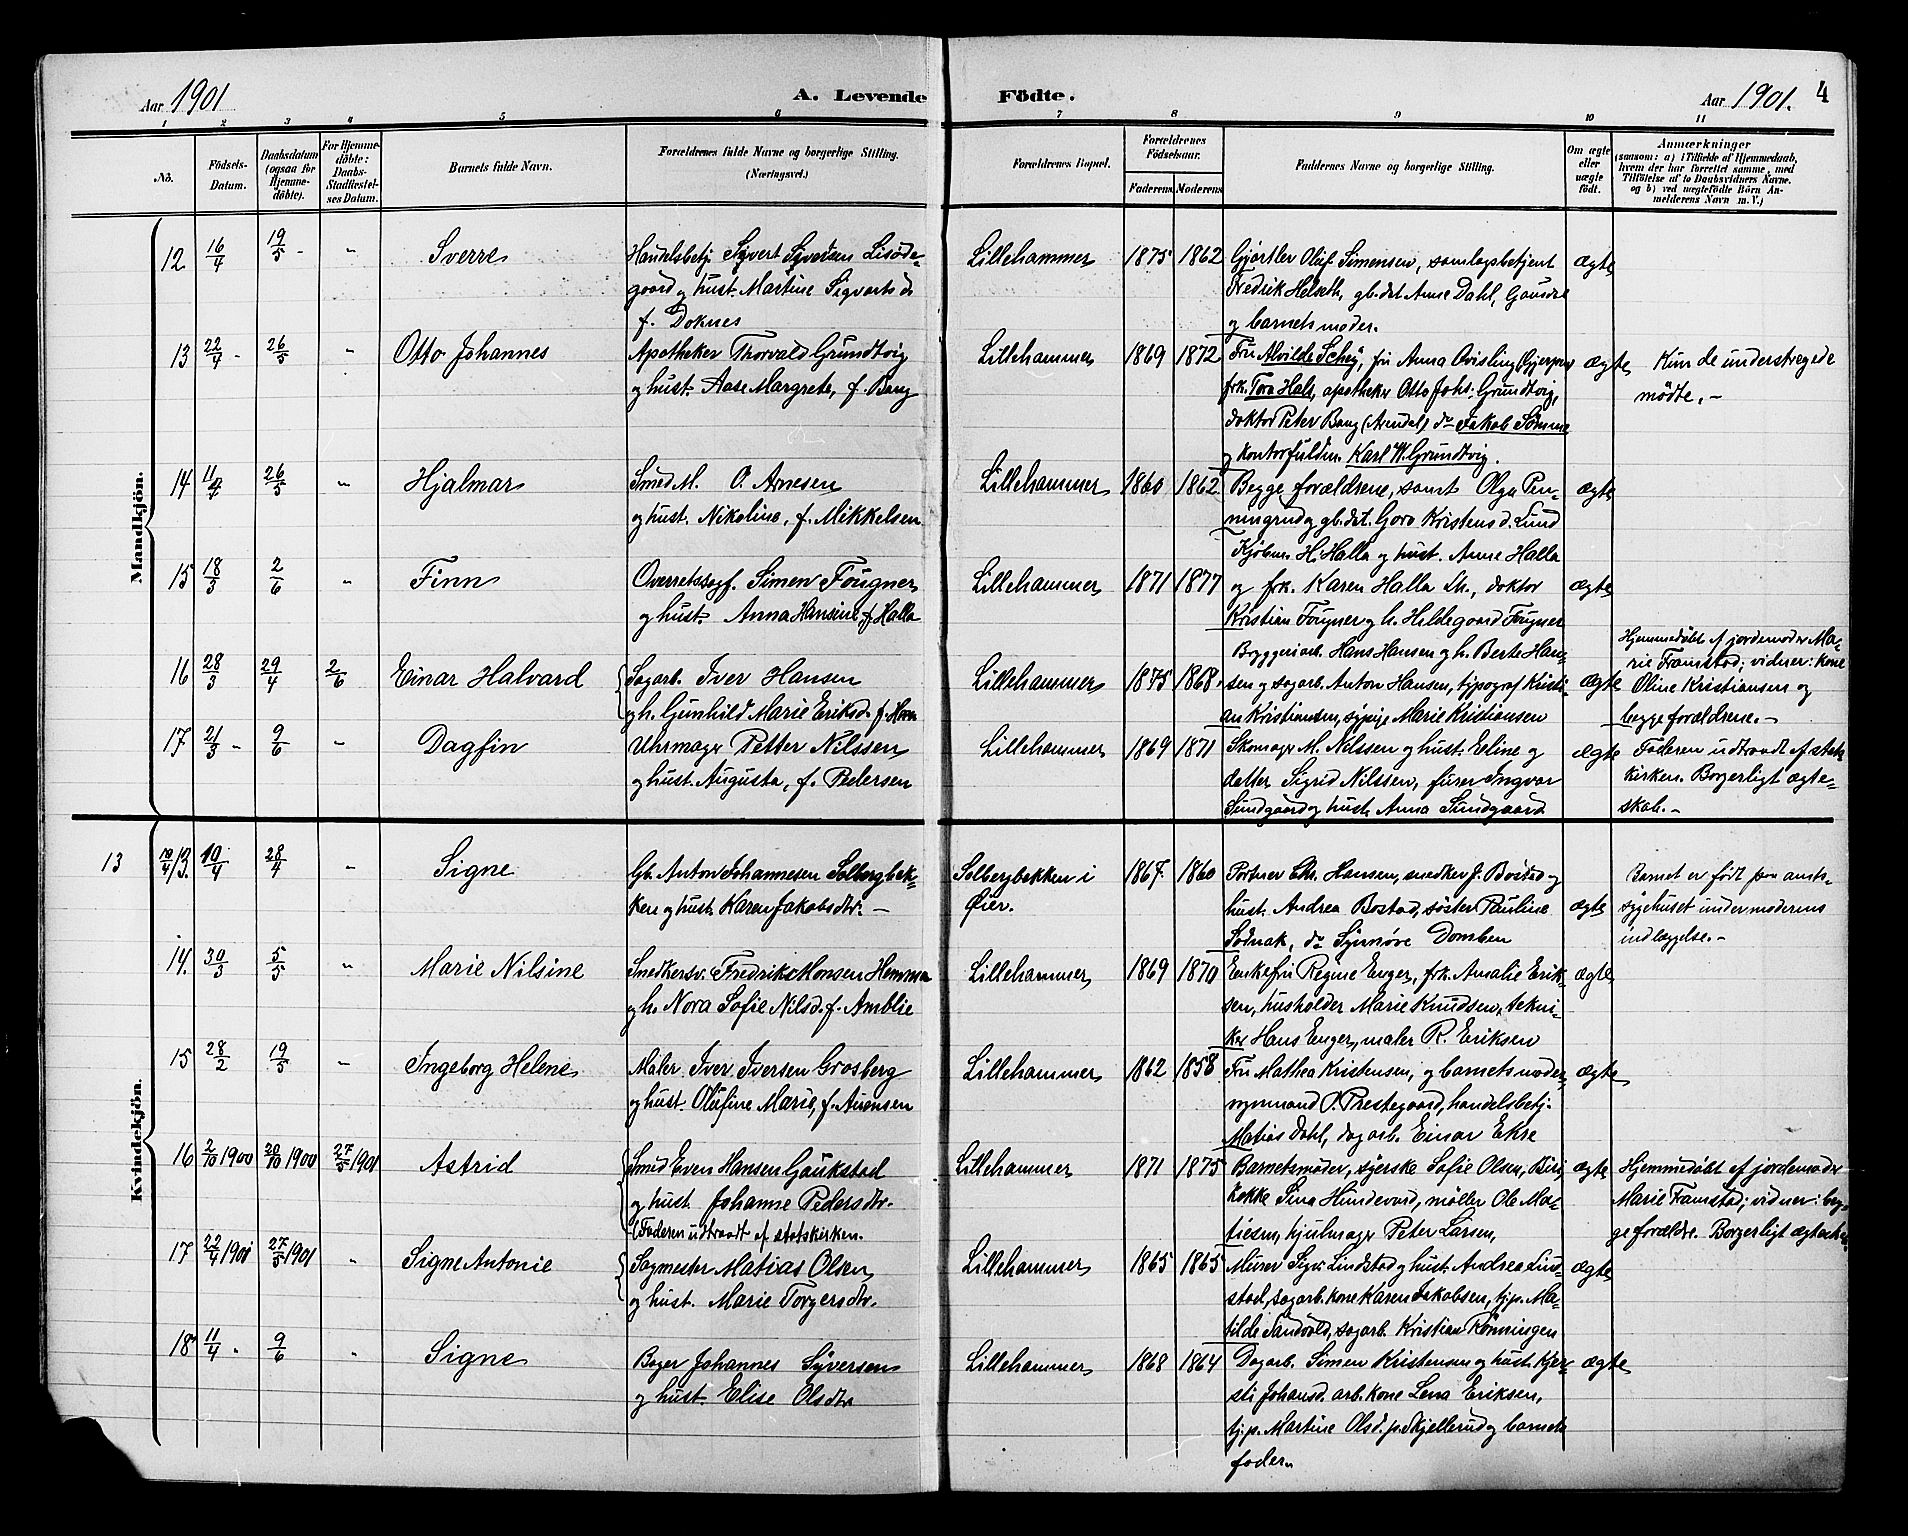 Aar 1901
A. Levende Födte.
Aar 1901. 4
1 2 3 4 5 6 7 8 9 10 11
No.
Födsels-
Datum.
Daabsdatum
(ogsaa for
Hjemme-
döbte).
For Hjemme-
döbte:
Daabs-
Stadfæstel-
ses Datum.
Barnets fulde Navn.
Forældrenes fulde Navne og borgerlige Stilling.
(Næringsvei.)
Forældrenes Bopæl.
Forældrenes
Födselsaar.
Faderens Moderens
Faddernes Navne og borgerlige Stilling.
Om ægte
eller
uægte
födt.
Anmærkninger
(saasom: a) i Tilfælde af Hjemmedaab,
hvem der har forrettet samme, med
Tilföielse af to Daabsvidners Navne.
og b) ved uægtefödte Börn An-
melderens Navn m. V.)
Mandkjön.
12 16/4 19/5 - " Sverre
Handelsbetj. Syvert Syversen Lisöde-
gaard og hust. Martine Sigvartsd.
f. Doknes
Lillehammer 1875 1862
Gjørtler Oluf Simensen, samlagsbetjent
Fredrik Helseth, gb.dat. Anne Dahl, Gausdal
og barnets moder.
ægte
13 22/4 - 26/5 " Otto Johannes
Apotheker Thorvald Grundtvig
og hust. Aase Margrete, f. Bang
Lillehammer 1869 1872
Fru Alvilde Schey, fru Anna Qvisling (Gjerpen)
frk. Tora Hals, apotheker Otto Johs. Grundtvig,
doktor Peter Bang (Arendal) do Jakob Sömme
og kontorfuldm. Karl W. Grundtvig.
ægte
Kun de understregede
mödte. -
14 11/4 26/5 " Hjalmar
Smed M. O. Arnesen
og hust. Nikoline, f. Mikkelsen
Lillehammer 1860 1862
Begge forældrene, samt Olga Pen-
ningrud og gb.dat. Goro Kristensd. Lund
ægte
15 18/3 2/6 " Finn
Overretssagf. Simen Fougner
og hust. Anna Hansine, f. Halla
Lillehammer 1871 1877
Kjøbm. H. Halla og hust. Anne Halla
og frk. Karen Halla Lh., doktor
Kristian Fougner og h. Hildegaard Fougner
ægte
16 28/3 29/4 2/6 Einar Halvard
Sagarb. Iver Hansen
og h. Gunhild Marie Eriksd. f. Moen
Lillehammer 1875 1868
Bryggeriarb. Hans Hansen og h. Berte Han-
sen og sagarb. Anton Hansen, typograf Kristi-
an Kristiansen, sypige Marie Kristiansen
ægte
Hjemmedøbt af jordemoder Ma-
rie Framstad; vidner: kone
Oline Kristiansen og
begge forældrene. -
17 21/3 - 9/6 " Dagfin
Uhrmager Petter Nilssen
og hust. Augusta, f. Pedersen
Lillehammer 1869 1871
Skomager M. Nilssen og hust. Eline og
datter Sigrid Nilssen, furer Ingvar
Sundgaard og hust. Anna Sundgaard
ægte
Faderen udtraadt af stats
kirken. Borgerligt ægte-
skab. -
Kvindekjön.
13 10/4 13. 10/4 28/4 " Signe
Gb. Anton Johannesen Solbergbek-
ken og hust. Karen Jakobsdtr. -
Solbergbekken i
Øier.
1867. 1860
Portner Chr. Hansen, snedker J. Bostad og
hust. Andrea Bostad, søster Pauline
Sodnak, do Synnøve Domben
ægte
Barnet er født paa amts-
sygehuset under moderens
indlæggelse. -
14. 30/3 5/5 " Marie Nilsine
Snedkersv. Fredrik Monsen Hemma
og h. Nora Sofie Nilsd. f. Amblie
Lillehammer 1869 1870
Enkefru Regine Enger, frk. Amalie Erik-
sen, husholder Marie Knudsen, tekni-
ker Hans Enger, maler R. Eriksen
ægte
15 28/2 19/5 " Ingeborg Helene
Maler Iver Iversen Grosberg
og hust. Olufine Marie, f. Aurensen
Lillehammer 1862 1858
Fru Mathea Kristensen, og barnets moder,
vognmand O. Prestegaard, handelsbetj.
Matias Dahl, dagarb. Einar Ekre
ægte
16 2/10 1900 20/10 1900 27/5 1901 Astrid
Smed Even Hansen Gaukstad
og hust. Johanne Pedersdtr.
(Faderen udtraadt af statskirken.
Lillehammer 1871 1875
Barnets moder, syerske Sofie Olsen, Biri,
kokke Sina Hundevard, møller Ole Ma-
tiesen, hjulmager Peter Larsen,
ægte
Hjemmedøbt af jordemoder
Marie Framstad; vidner: beg-
ge forældre. Borgerligt ægteskab
17 22/4 1901 27/5 1901 " Signe Antonie
Sagmester Matias Olsen
og hust. Marie Torgersdtr.
Lillehammer 1865 1865
Murer Sigv. Lindstad og hust. Andrea Lind-
stad, sagarb. kone Karen Jakobsen, tj.p. Ma-
tilde Sandvold, sagarb. Kristian Rönningen
ægte
18 11/4 - 9/6 " Signe
Bager Johannes Syversen
og hust. Elise Olsdtr
Lillehammer 1868 1864
Dagarb. Simen Kristensen og hust. Kjer-
sti Johansd. arb. kone Lena Eriksen,
tj.p. Martine Olsd. p. Skjellerud og barnets
fader.
ægte